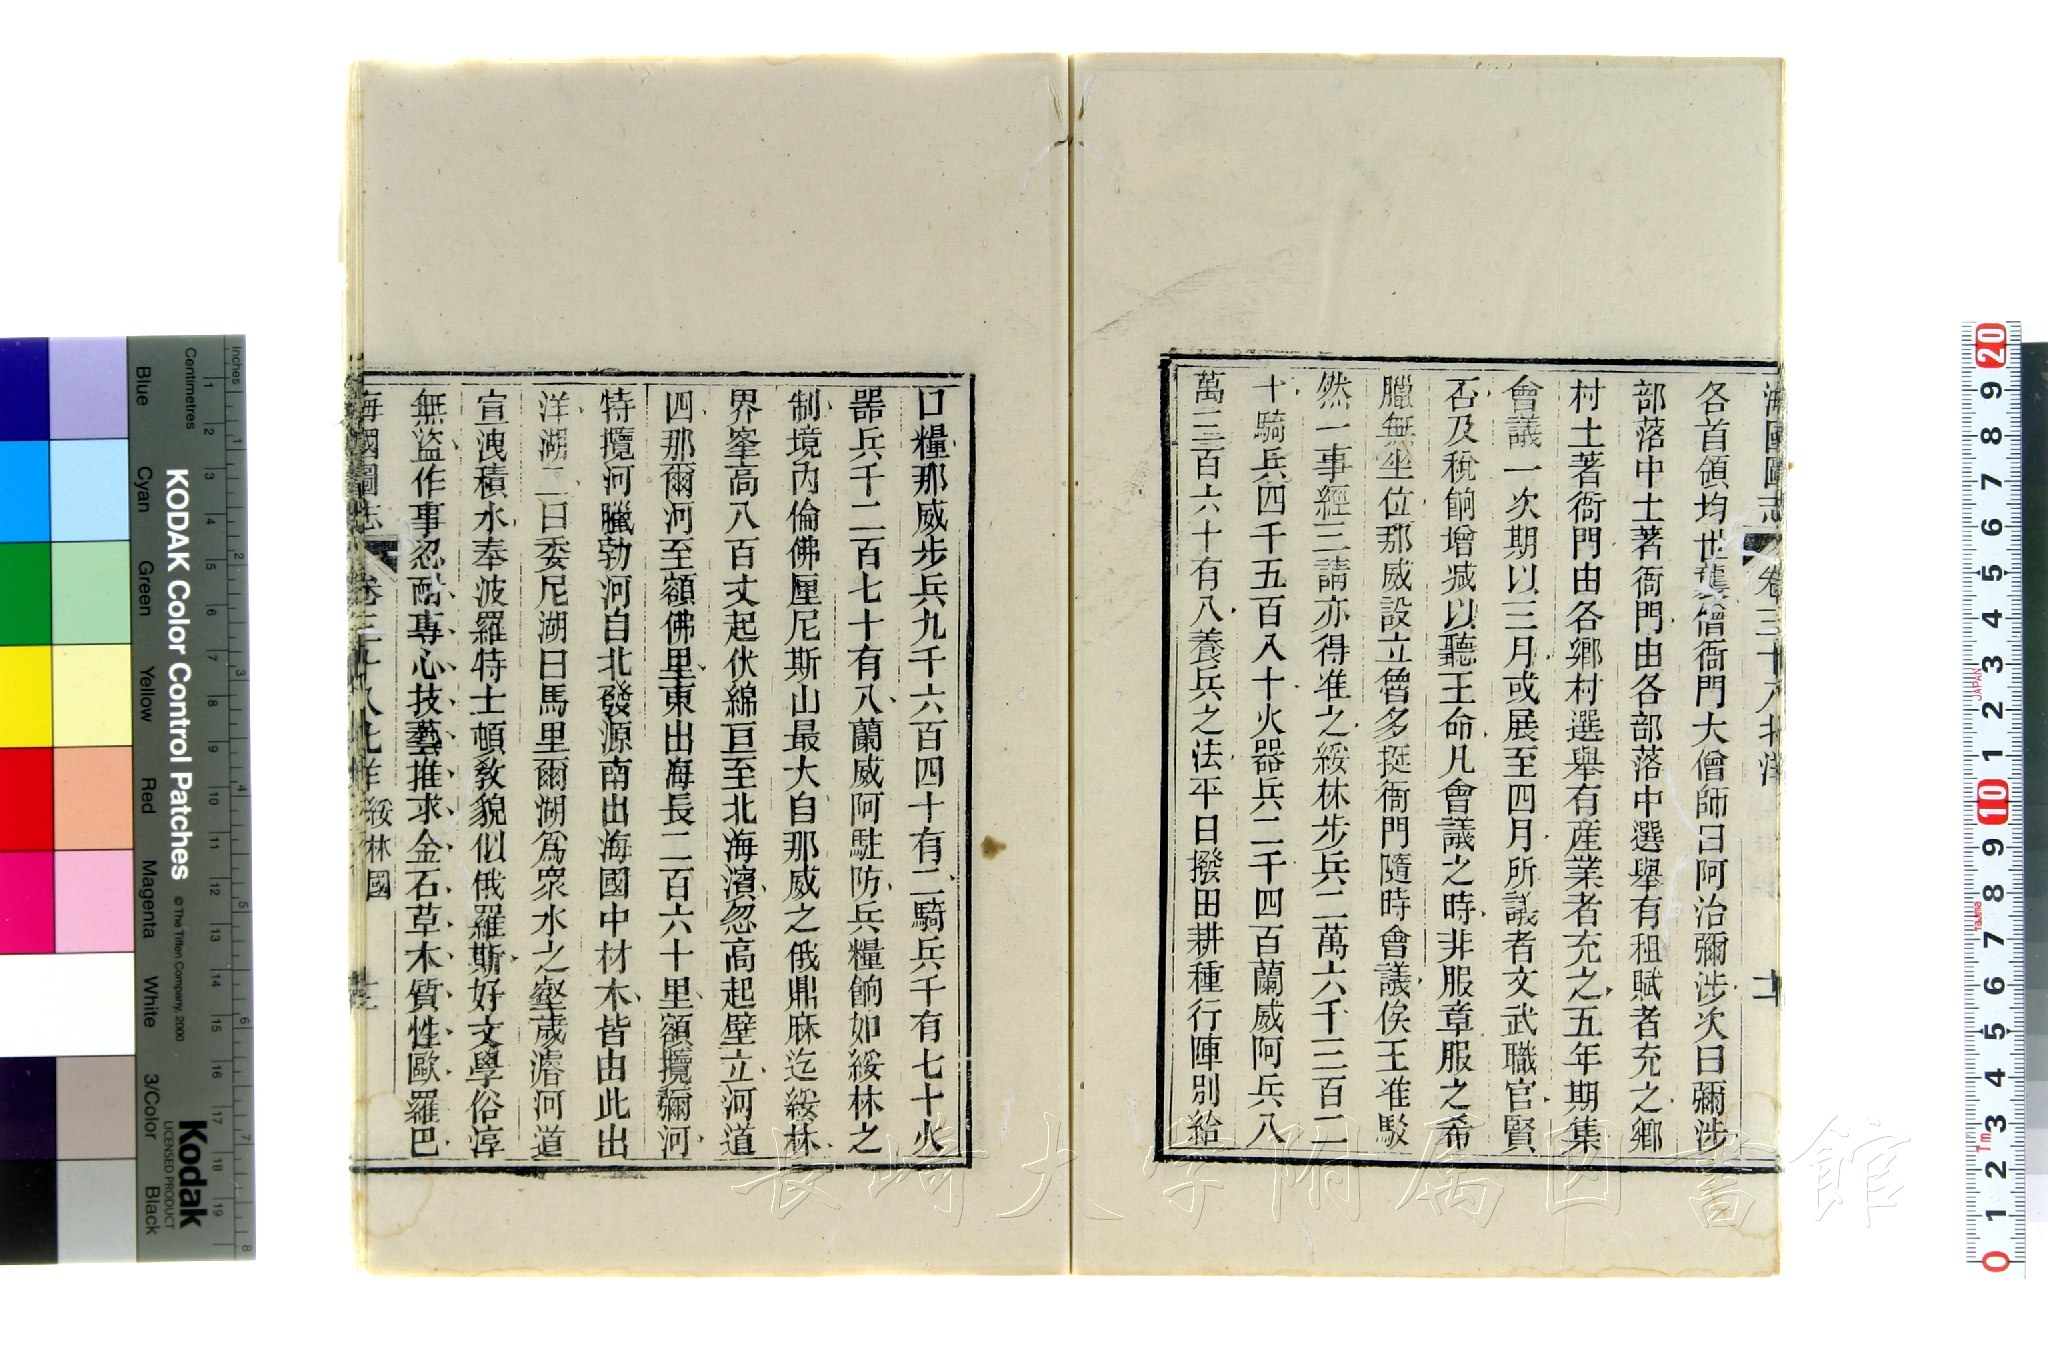 海國圖志
卷三十八北洋
十二
各首領均世襲僧衙門大僧師曰阿治彌涉次曰彌涉
部落中土著衙門由各部落中選舉有租賦者充之鄉
村土著衙門由各鄉村選舉有産業者充之五年期集
會議一次期以三月或展至四月所議者文武職官賢
否及稅餉增減以聽王命凡會議之時非服章服之希
臘無坐位那威設立魯多挺衙門隨時會議俟王准駁
然一事經三請亦得准之綏林步兵二萬六千三百二
十騎兵四千五百八十火器兵二千四百蘭威阿兵八
萬三百六十有八養兵之法平日撥田耕種行陣別給
口糧那威步兵九千六百四十有二騎兵千有七十火
器兵千二百七十有八蘭威阿駐防兵糧餉如綏林之
制境內倫佛厘尼斯山最大自那威之俄鼎麻迄綏林
界峯高八百丈起伏綿亘至北海濱忽高起壁立河道
四那爾河至額佛里東出海長二百六十里額攬彌河
特攬河臘勃河自北發源南出海國中材木皆由此出
洋湖二曰委尼湖曰馬里爾湖爲眾水之壑歲濬河道
宣洩積水奉波羅特士頓教貌似俄羅斯好文學俗淳
無盜作事忍耐專心技藝推求金石草木質性歐羅巴
海國圖志
卷三十八北洋 綏林國
十三
長崎大学附属図書館
KODAK Color Control Patches
© The Tiffen Company, 2000
Kodak
LICENSED PRODUCT
Inches
Centimetres
Blue
Cyan
Green
Yellow
Red
Magenta
White
3/Color
Black
1 2 3 4 5 6 7 8 9 10 11 12 13 14 15 16 17 18 19
1 2 3 4 5 6 7 8
0 1 2 3 4 5 6 7 8 9 10 1 2 3 4 5 6 7 8 9 20
JAPAN